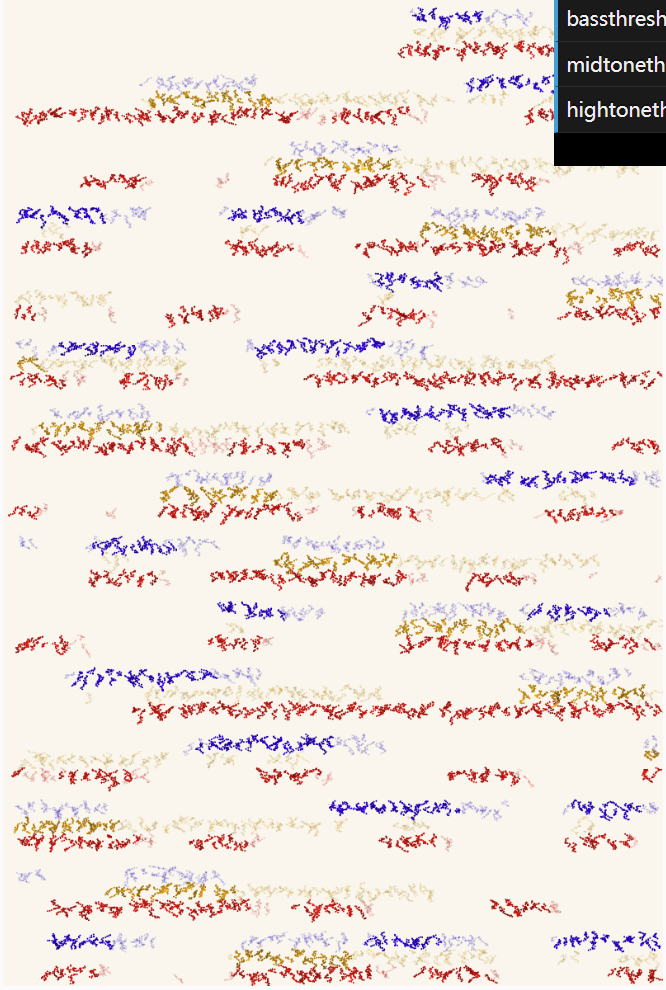 bassthresh
midtoneth
hightoneth